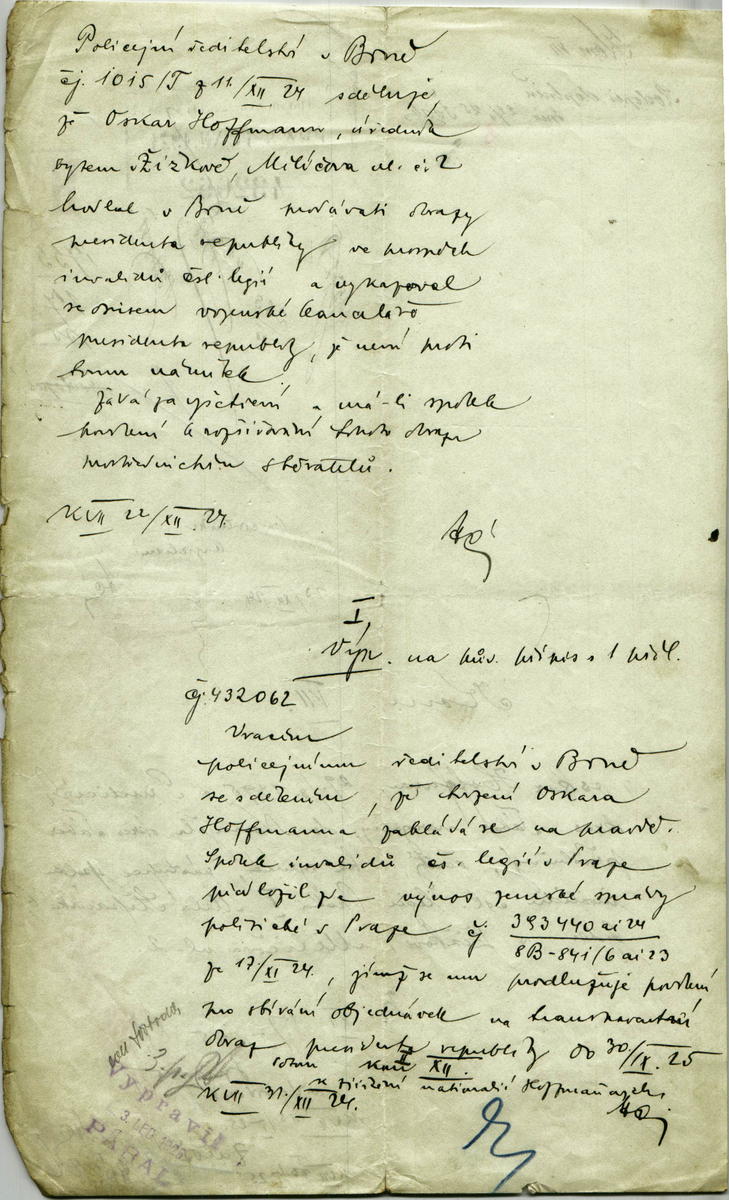 Policejní ředitelství v Brně
čj. 1015/T z 11./XII 24 sděluje,
že Oskar Hoffmann, úředník
bytem v Žižkově, Milíčova ul. č. 2
hodlal v Brně prodávati obrazy
presidenta republiky ve prospěch
invalidů čsl. legií a vykazoval
se dopisem vojenské kanceláře
presidenta republiky, že není proti
tomu námitek.
Žádá za vyšetření a má-li spolek
povolení k rozšiřování tohoto obrazu
prostřednictvím sběratelů.
KVII 22/XII. 24.
I,
Výp. na pův. přípis s 1 příl.
čj. 432062
Vracím
policejnímu ředitelství v Brně
se sdělením, že tvrzení Oskara
Hoffmanna zakládá se na pravdě.
Spolek invalidů čs. legií v Praze
předložil výnos zemské správy
politické v Praze čj. 393440 ai 24
8B-841/6 ai 23
ze 17/XI 24., jímž se mu prodlužuje povolení
pro sbírání objednávek na transparentní
obraz presidenta republiky do 30/IX. 25
XII.
nationalií Hoffmannových
KVII 31./XII 24.
Vypravil
PÁRAL